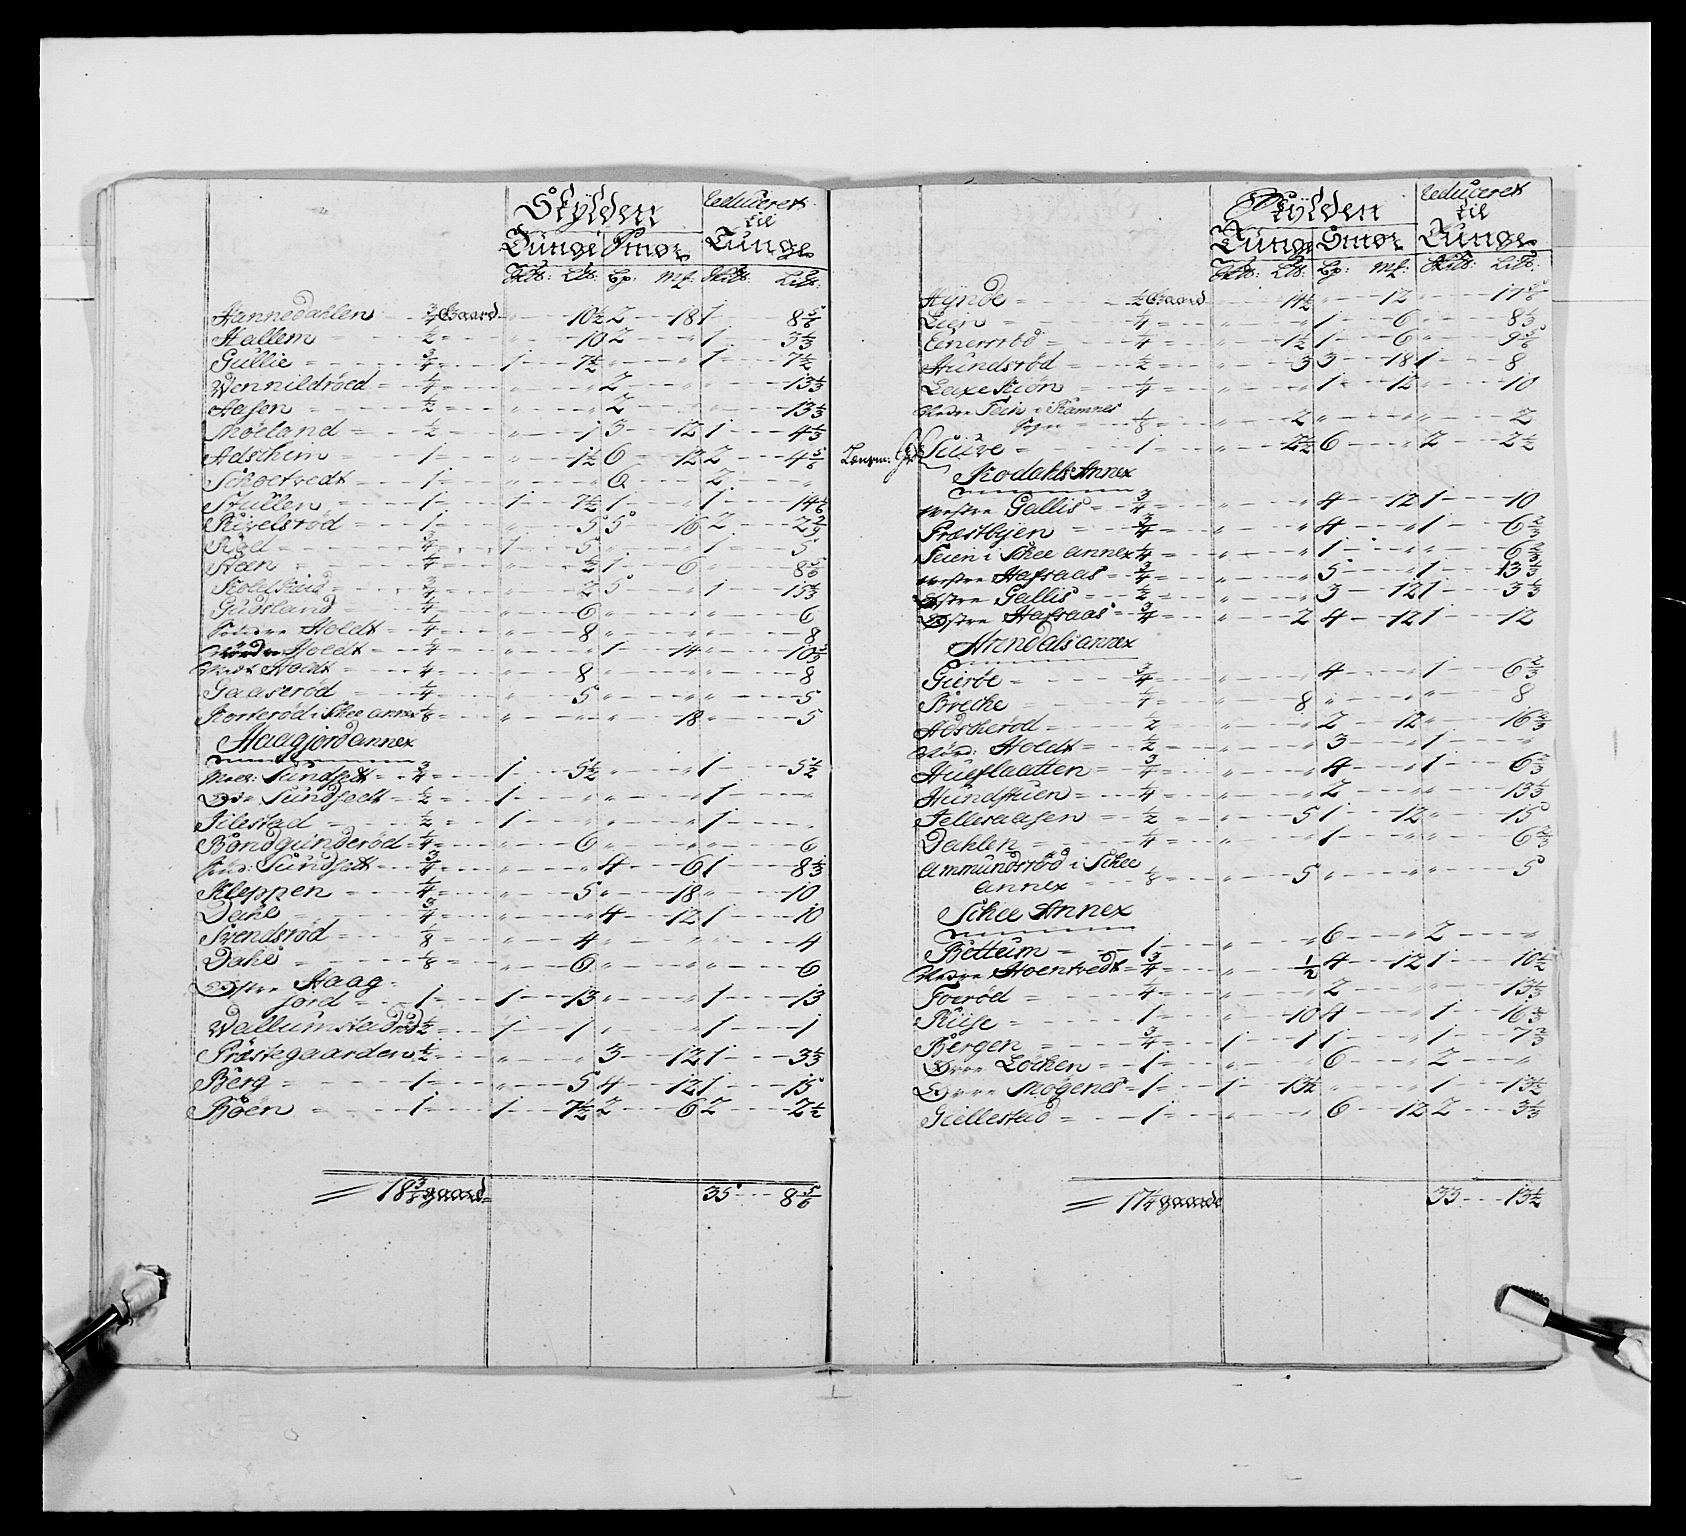 Skylden reduceret
til
Tunge Smør Tunge
Skl͞b: L͞b: Bp: Mk: Skl͞b: L͞b:
Hannedahlen ¾ Gaard " 10½ 2 18 1 8⅚
Hallem ½ " 10 2 " 1 3⅓
Gullie ¾ 1 7½ " " 1 7½
Wennildröed ¼ " " 2 " " 13⅓
Aasen ½ " " 2 " " 13⅓
Moeland ½ " 1 3 12 1 4⅓
Adsthim 1 " 1½ 6 12 2 4⅚
Schoetvedt 1 " " 6 " 2 "
Hullen 1 1 7½ 1 " 1 14⅙
Rivelsröd 1 " 5 5 16 2 2
Röel ¾ 1 5 " " 1 5
Steen ¼ " ½ 1 6 " 8⅚
Kolekiød ¾ " 2 5 " 1 15⅓
Gudsland ¼ " 6 " " " 6
Söndre Holdt ¼ " 8 " " " 8
Nordre Holdt ¼ " " 1 14 " 10
Medt Holdt ¼ " 8 " " " 8
Gaaserød ¼ " 5 " " " 5
Korterød i Schee annex ⅛ " " " 18 " 5
Haagjord annex
Sundsedt ¾ 1 5½ " " 1 5½
Sundsedt ½ 1 " " " 1 "
Jilestad ½ 1 " " " 1 "
Bondgunderød ¼ " 6 " " " 6
Sundsedt ¾ " " 4 6 1 8⅓
Kleppen ¼ " 5 " 18 " 10
¾ " " 4 12 1 10
Svendsrød ⅛ " 4 " " " 4
Dahl ⅛ " 6 " " " 6
Østre Haag-
jord 1 1 13 " " 1 13
Wallumstad ½ 1 1 " " 1 1
Præstegaarden ½ " " 3 12 1 3⅓
Berg 1 " 5 4 12 1 15
Röen 1 1 7½ 2 6 2 2½
18 gaard 35 8⅚
Skylden reduceret
til
Tunge Smør Tunge
Skl͞b: L͞b: Bp: Mk: Skl͞b: L͞b:
Hynde ½ Gaard 14½ " 12 " 17⅚
Lien ¼ " " 1 6 " 8⅓
Enersröd ¼ " 1½ 1 6 " 9⅚
Hundsröd ½ " 3 3 18 1 8
Laxeskiön ¼ " " 1 12 " 10
Nedre Fein i Ramnes
Sogn ⅛ " 2 " " " 2
Lænsm: Gd Suve 1 " 2½ 6 " 2 2½
Kodahls Annex
westre Gallis ¾ " " 4 12 1 10
Præstbyen ¾ " " 4 " 1 6⅔
Feien i Schee annex ¼ " " 1 " " 6⅔
westre Hafsaas ¾ " " 5 " 1 13⅓
Østre Gallis ½ " " 3 12 1 3⅓
Østre Hafsaas ¾ " 2 4 12 1 12
Arndals annex
Gieröe ¾ " " 4 " 1 6⅔
Breche ¼ " 8 " " " 8
Hostheröd ½ " " 2 12 " 16⅔
Holdt ½ " " 3 " 1 "
Hueflaatten ¾ " " 4 " 1 6⅔
Hundstuen ¼ " " 2 " " 13⅓
Jelleraasen ½ " 5 1 12 " 15
Dahlen ¼ " " 1 " " 6⅔
Ammundsröd i Schee
annex ⅛ " 5 " " " 5
Schee Annex
Bettum 1 " " 6 " 2 "
Nedre Hoentvedt ¾ " ½ 4 12 1 10½
Foeröd ¼ " " 2 " " 13⅓
Riise 1 " 10 4 " 1 16⅔
Bergen ¾ 1 1 1 " 1 7⅔
Øvre Löchen 1 " " 6 " 2 "
Øvre Mogenes 1 1 13½ " " 1 13½
Gullestad 1 " " 6 12 2 3⅓
17¼ gaarde 33 13½